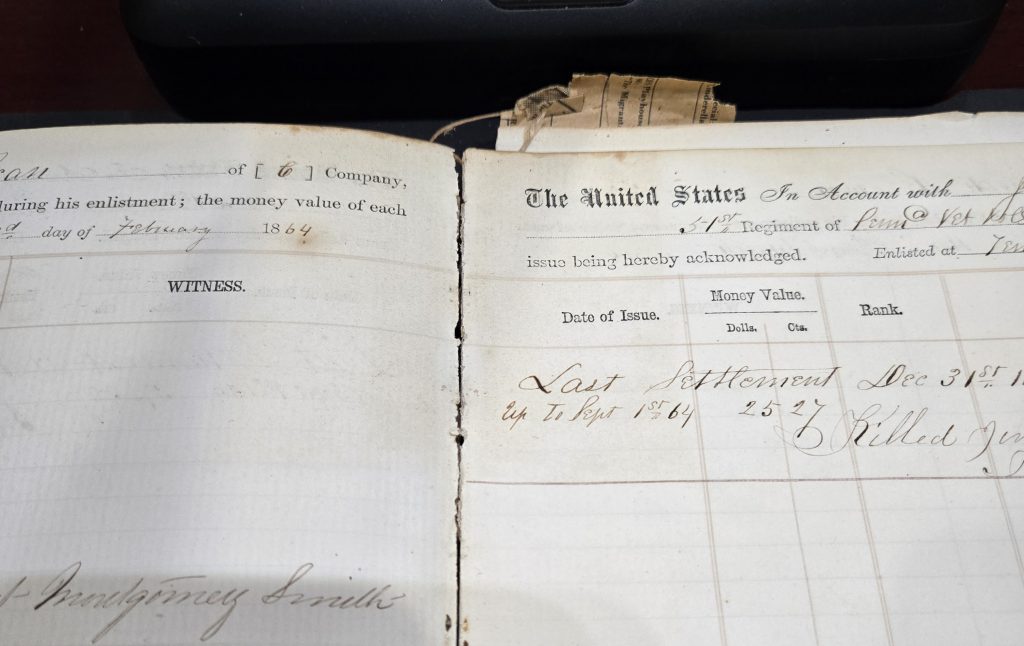 of [ C ] Company,
during his enlistment; the money value of each
day of February 1864
WITNESS.
Montgomery Smith
The United States In Account with
51st Regiment of Penna Vet Vol
issue being hereby acknowledged. Enlisted at
Date of Issue. Money Value. Rank.
Dolls. Cts.
Last Settlement Dec 31st
Up To Sept 1st 64 25 27
Killed